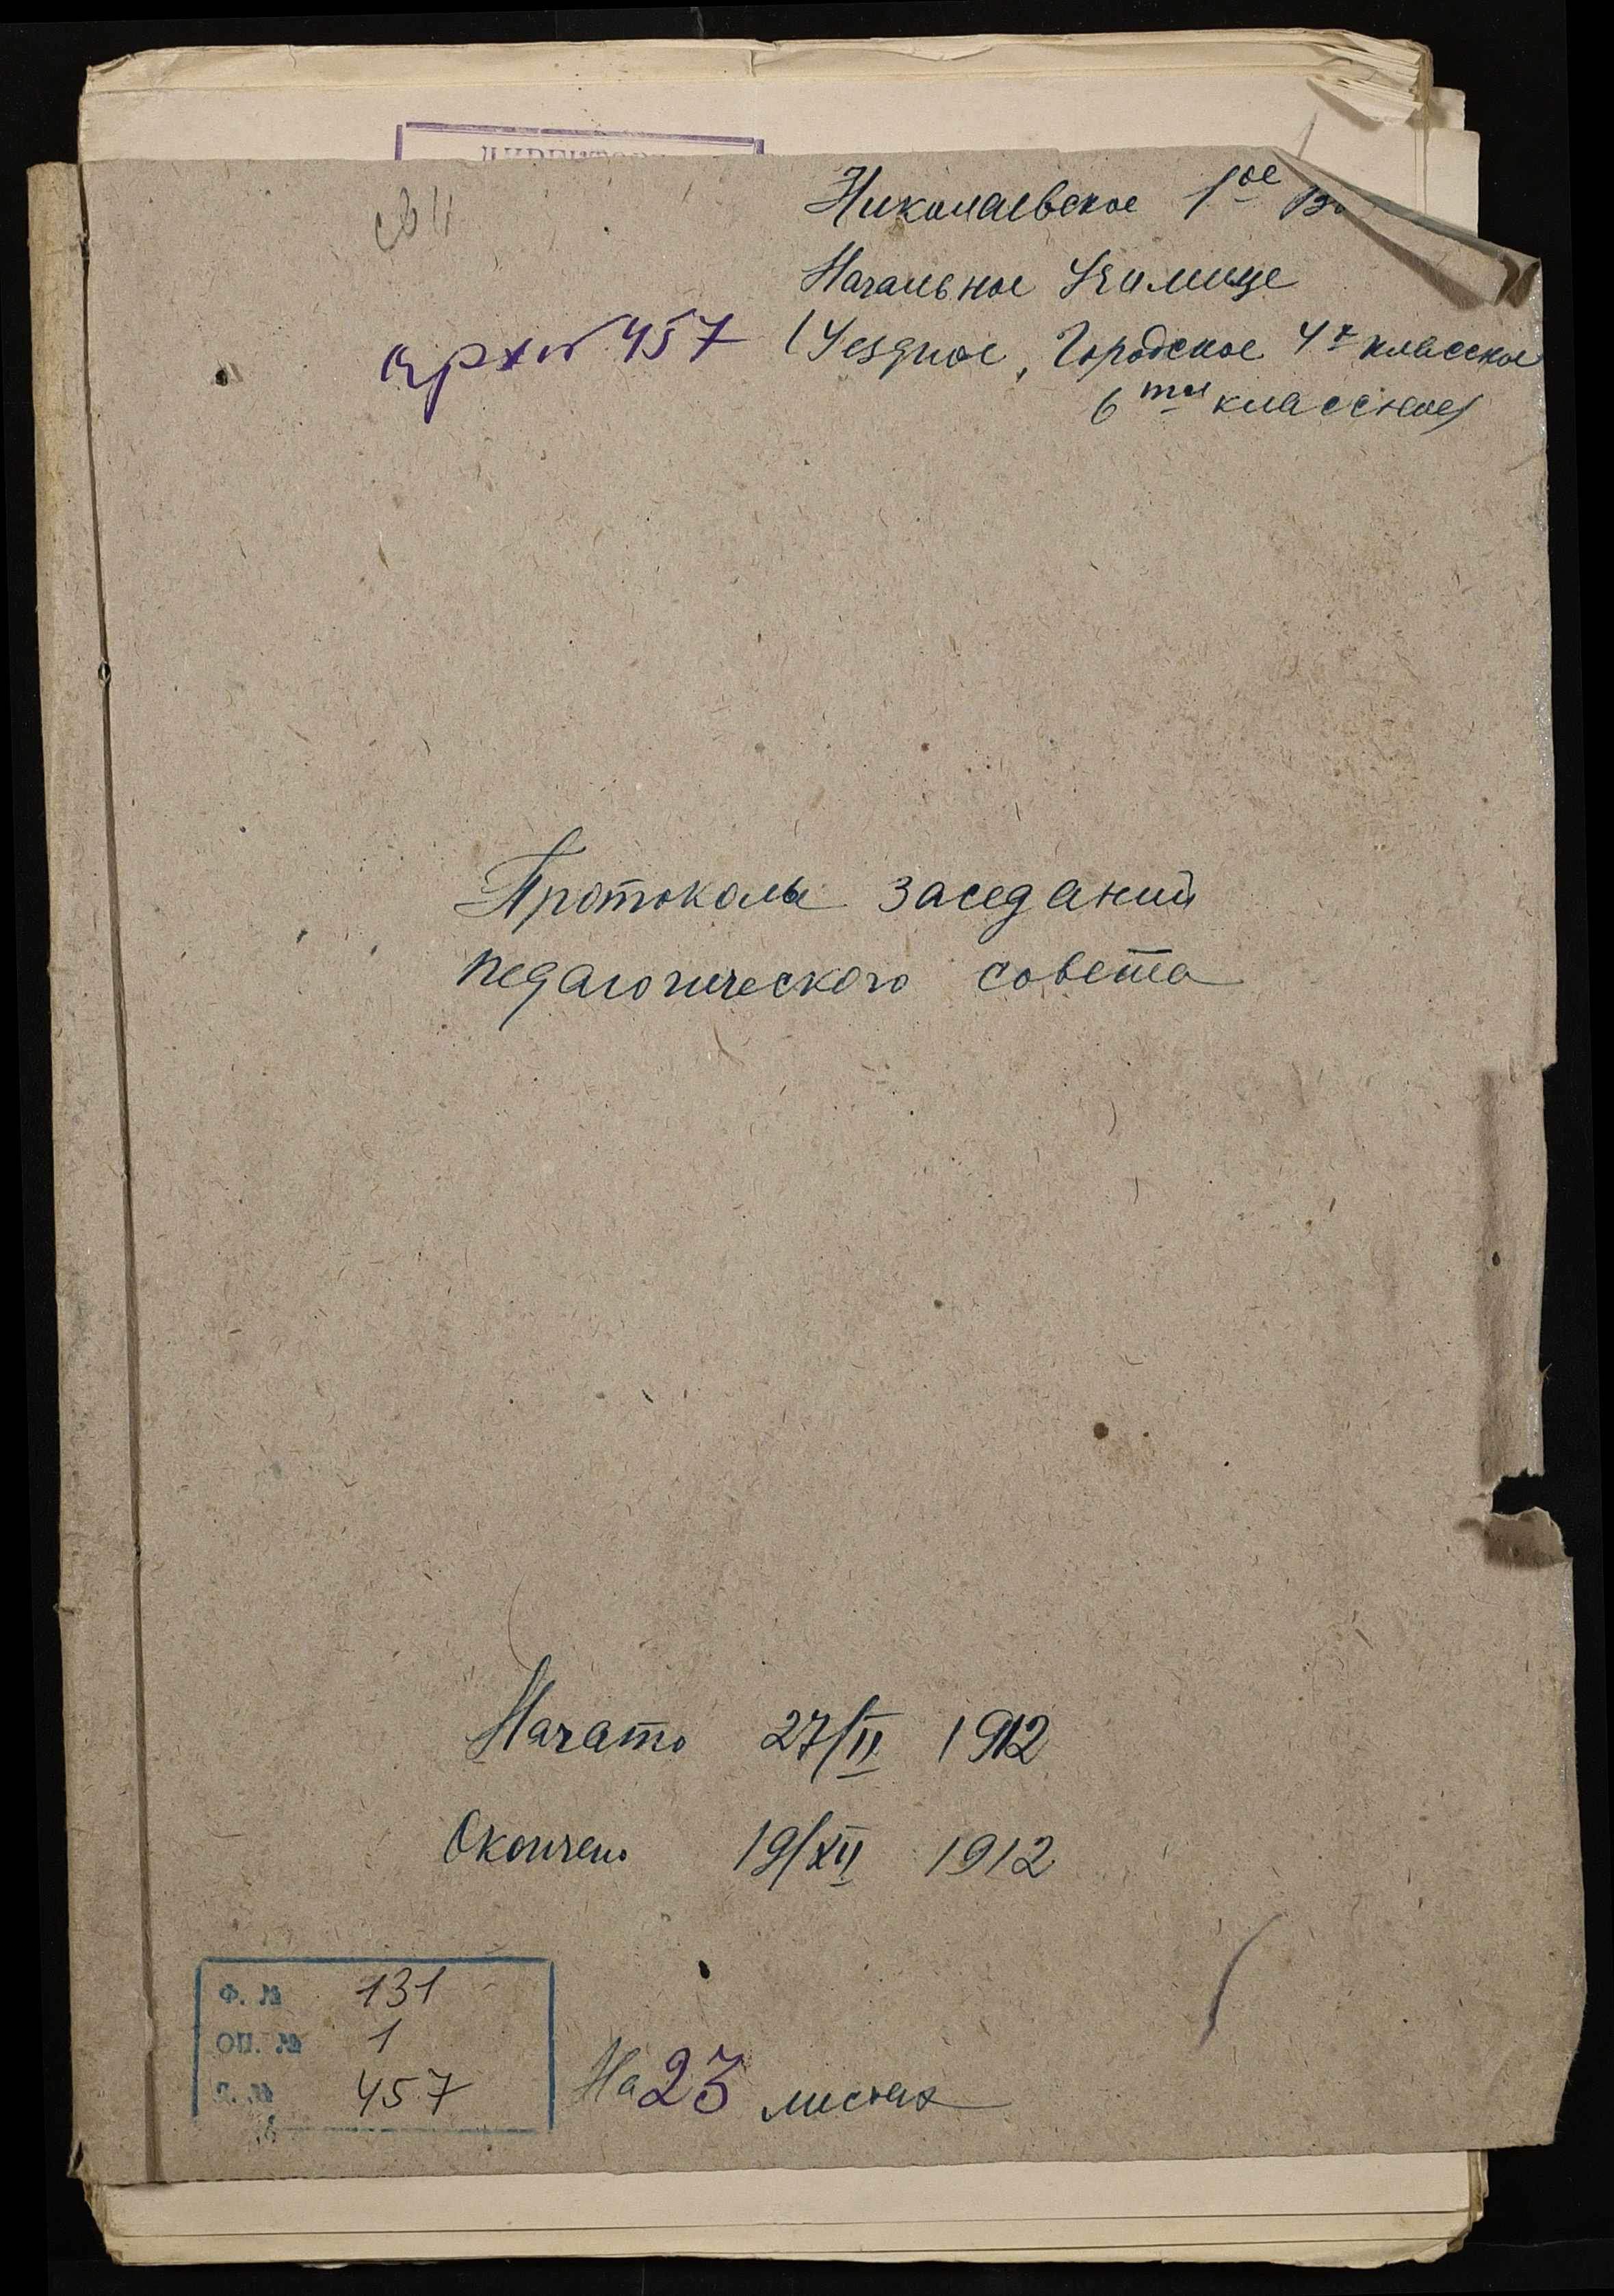 Николаевское 1ое
Начальное Училище
архив 457
(Уездное, Городское 4х классное
6ти классное)
Протоколы заседаний
педагогического совета
Начато 27/II 1912
Окончено 19/XII 1912
Ф. № 131
ОП. № 1
Д. № 457
На 23 листах